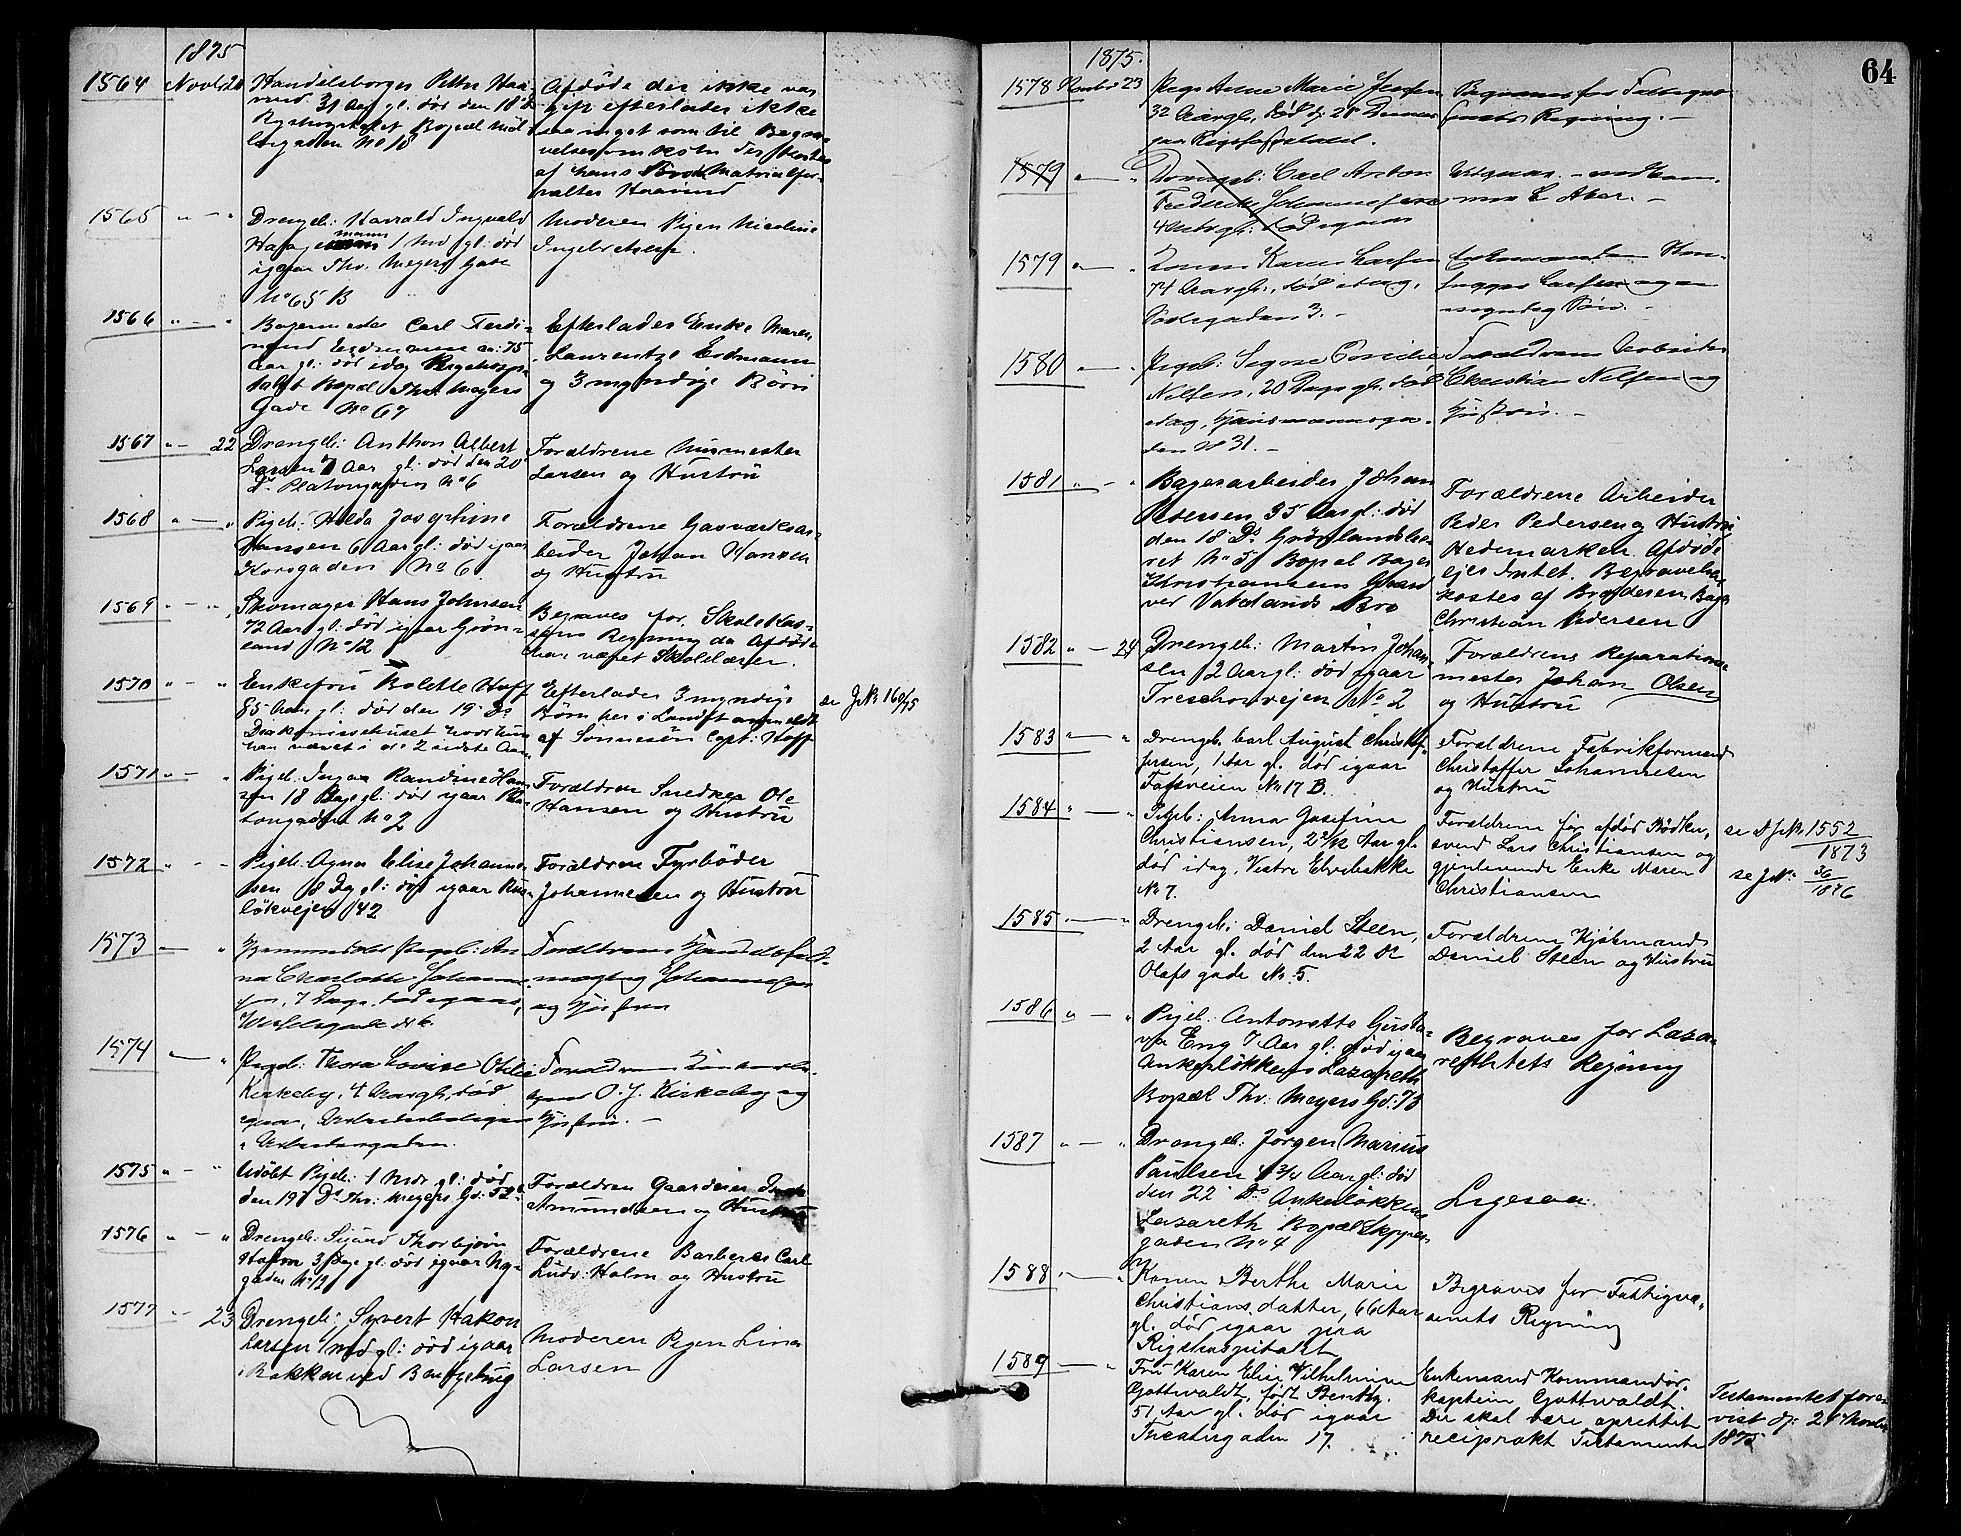 1875
1564 Novbr 20 Handelsborger Petter Haa-
rund 31 Aar gl. død den 18 ds
Rigshospitalet Bopæl Møl-
lergaden No 18
Afdøde der ikke var
gift efterlader ikke
saa meget som til Begra-
velsesomkostn der
af hans Broder Materialfor-
valter Haarund
1565 " — " Drengeb: Harald Ingvald
Haagemann 1 Md gl: død
igaar Thv. Meyers Gade
No 65 B
Moderen Pigen Nicoline
Ingebretsen.
1566 " — " Bagermester Carl Ferdi-
nand Erdmann 75
Aar gl: død idag Rigshospi-
talet Bopæl Thv. Meyers
Gade No 67
Efterlader Enke Maren
Laurentze Erdmann
og 3 myndige Børn
1567 " — 22 Drengeb: Anthon Albert
Larsen 7 Aar gl: død den 20
Ds Platougaden No 6
Forældrene Murmester
Larsen og Hustru
1568 " — " Pigeb: Hilda Josephine
Hansen 6 Aar gl: død igaar
Korsgaden No 6
Forældrene Gasværksar-
beider Johan Hansen
og Hustru
1569 " — " Skomager Hans Johnsen
72 Aar gl: død igaar Grøn-
land No 12
Begraves for Skolekas-
sens Regning da Afdøde
har været Skolelærer.
1570 " — " Enkefru Bolette Hoff
85 Aar gl: død den 19 Ds
Diakonissehuset hvor hun
har været i de 2 sidste Aar
Efterlader 3 myndige
Børn her i Landet anmeldt
af Sønnesøn Capt: Hoff
se JNo 160/75
1571 " — " Pigeb: Inga Randine Han-
sen 18 Dage gl: død igaar Pla-
tougaden No 2
Forældrene Snedker Ole
Hansen og Hustru
1572 " — " Pigeb. Agnes Elise Johanne-
sen 8 Dg gl: død igaar Rus-
løkveien 42
Forældrene Fyrbøder
Johannesen og Hustru
1573 — " Hjemmedøbt Pigeb: An-
na Charlotte Johanne-
sen, 7 Dage, død igaar,
Wesselsgade No 6.
Forældrene Handelsfuld-
mægtig Johannesen
og Hustru
1574 — " Pigeb: Thora Lovise Otilie
Kirkeby, 4 Aar gl, død
igaar, Arbeiderboligen
i Arbeidergaden.
Forældrene
O. J. Kirkeby og
Hustru. —
1575 " — " Udøbt Pigeb: 1 Mdr gl: død
den 19 Ds Thv: Meyers Gd:
Forældrene Gaardeier
Amundsen og Hustru
1576 " — " Drengeb: Sigurd Thorbjørn
Holm 3 Dage gl: død igaar Ny-
gaden No 12
Forældrene Barberer Carl
Ludv: Holm og Hustru
1577 " — 23 Drengeb: Syvert Hakon
Larsen 1 Md gl: død igaar
Bakken ved Bentsebrug
Moderen Pigen Lina
Larsen
64
1875.
1578 Novbr 23 Pige Anne Marie Jensen
32 Aar gl., død d: 20 Dennes
paa Rigshospitalet.
Begraves for Fattigvæ-
senets Regning. —
1579 " — " Drengeb: Carl Anton
Fredrik Johannesen
død igaar
1579 " — " Konen Karen Larsen
74 Aar gl., død idag,
3. —
Enkemanden
Larsen og en
myndig Søn. —
1580 " — " Pigeb: Signe Cecilie
Nilsen, 20 Dage gl. død
idag, Hausmannsga-
den No 31. —
Forældrene Arbeider
Christian Nilsen og
Hustru. —
1581 " — " Bagerarbeider Johan
Pedersen 35 Aar gl: død
den 18 Ds Grønlandsle-
ret No 5 Bopæl Bager
Christiansens Gaard
ved Vaterlands Bro
Forældrene Arbeider
Peder Pedersen og Hustru
Hedemarken. Afdøde
eier Intet. Begravelsen
kostes af Broderen Bager
Christian Pedersen
1582 " — 24 Drengeb: Martin Johan-
sen 2 Aar gl: død igaar
Treschowveien No 2
Forældrene Reparations-
mester Johan Olsen
og Hustru
1583 " — " Drengeb. Carl August Christof-
fersen, 1 Aar gl. død igaar
Fossveien No 17 B.
Forældrene Fabrikformand
Christoffer Johannesen
og Hustru
1584 " — " Pigeb: Anna Josefine
Christiansen, 2 2/12 Aar gl.
død idag, Vestre Elvebakke
No 7.
Forældrene før afdød Bødker-
svend Lars Christiansen og
gjenlevende Enke Maren
Christiansen
se DJNo 1552/1873
se JNo 36/1876
1585 " — " Drengeb: Daniel Steen,
2 Aar gl. død den 22 Ds
Olafs gade No 5.
Forældrene Kjøbmand
Daniel Steen og Hustru
1586 " — " Pigeb: Antonette Gusta-
va Eng 7 Aar gl: død igaar
Ankerløkkens Lazareth
Bopæl Thv: Meyers Gd: 75
Begraves for Laza-
rethets Regning
1587 " — " Drengeb: Jørgen Marius
Paulsen 4 3/4 Aar gl: død
den 22 Ds Ankerløkkens
Lazareth Bopæl Skipper-
gaden No 4
Ligesaa.
1588 " — " Konen Berthe Marie
Christiansdatter, 66 Aar
gl. død igaar paa
Rigshospitalet
Begraves for Fattigvæ-
senets Regning
1589 — " Fru Karen Elise Vilhelmine
Gottwaldt, født
51 Aar gl. død igaar
Theatergaden 17.
Enkemand Kommandør-
kaptein Gottwaldt.
Der skal være oprettet
reciprokt Testamente
Testamentet fore-
vist d: 24 Novbr
1875